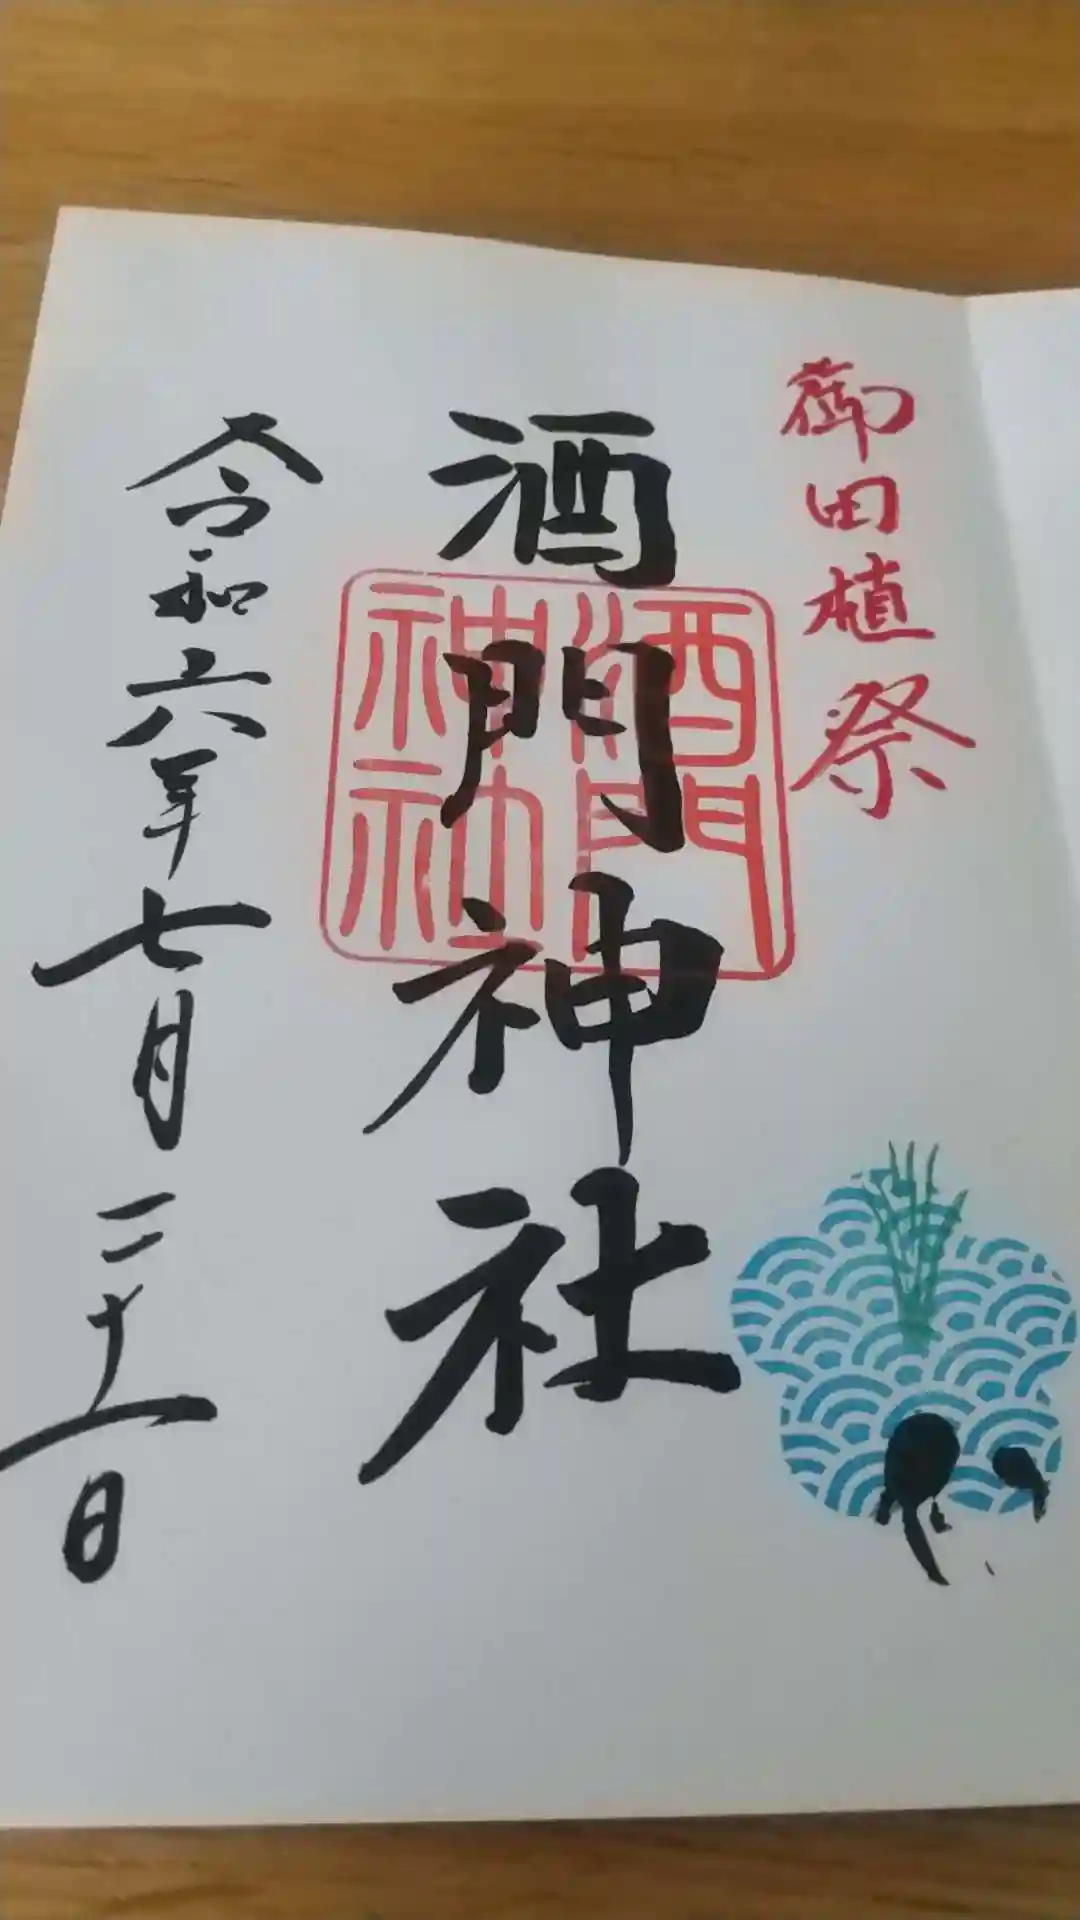 御田植祭
酒門神社
酒門神社
令和六年七月二十一日